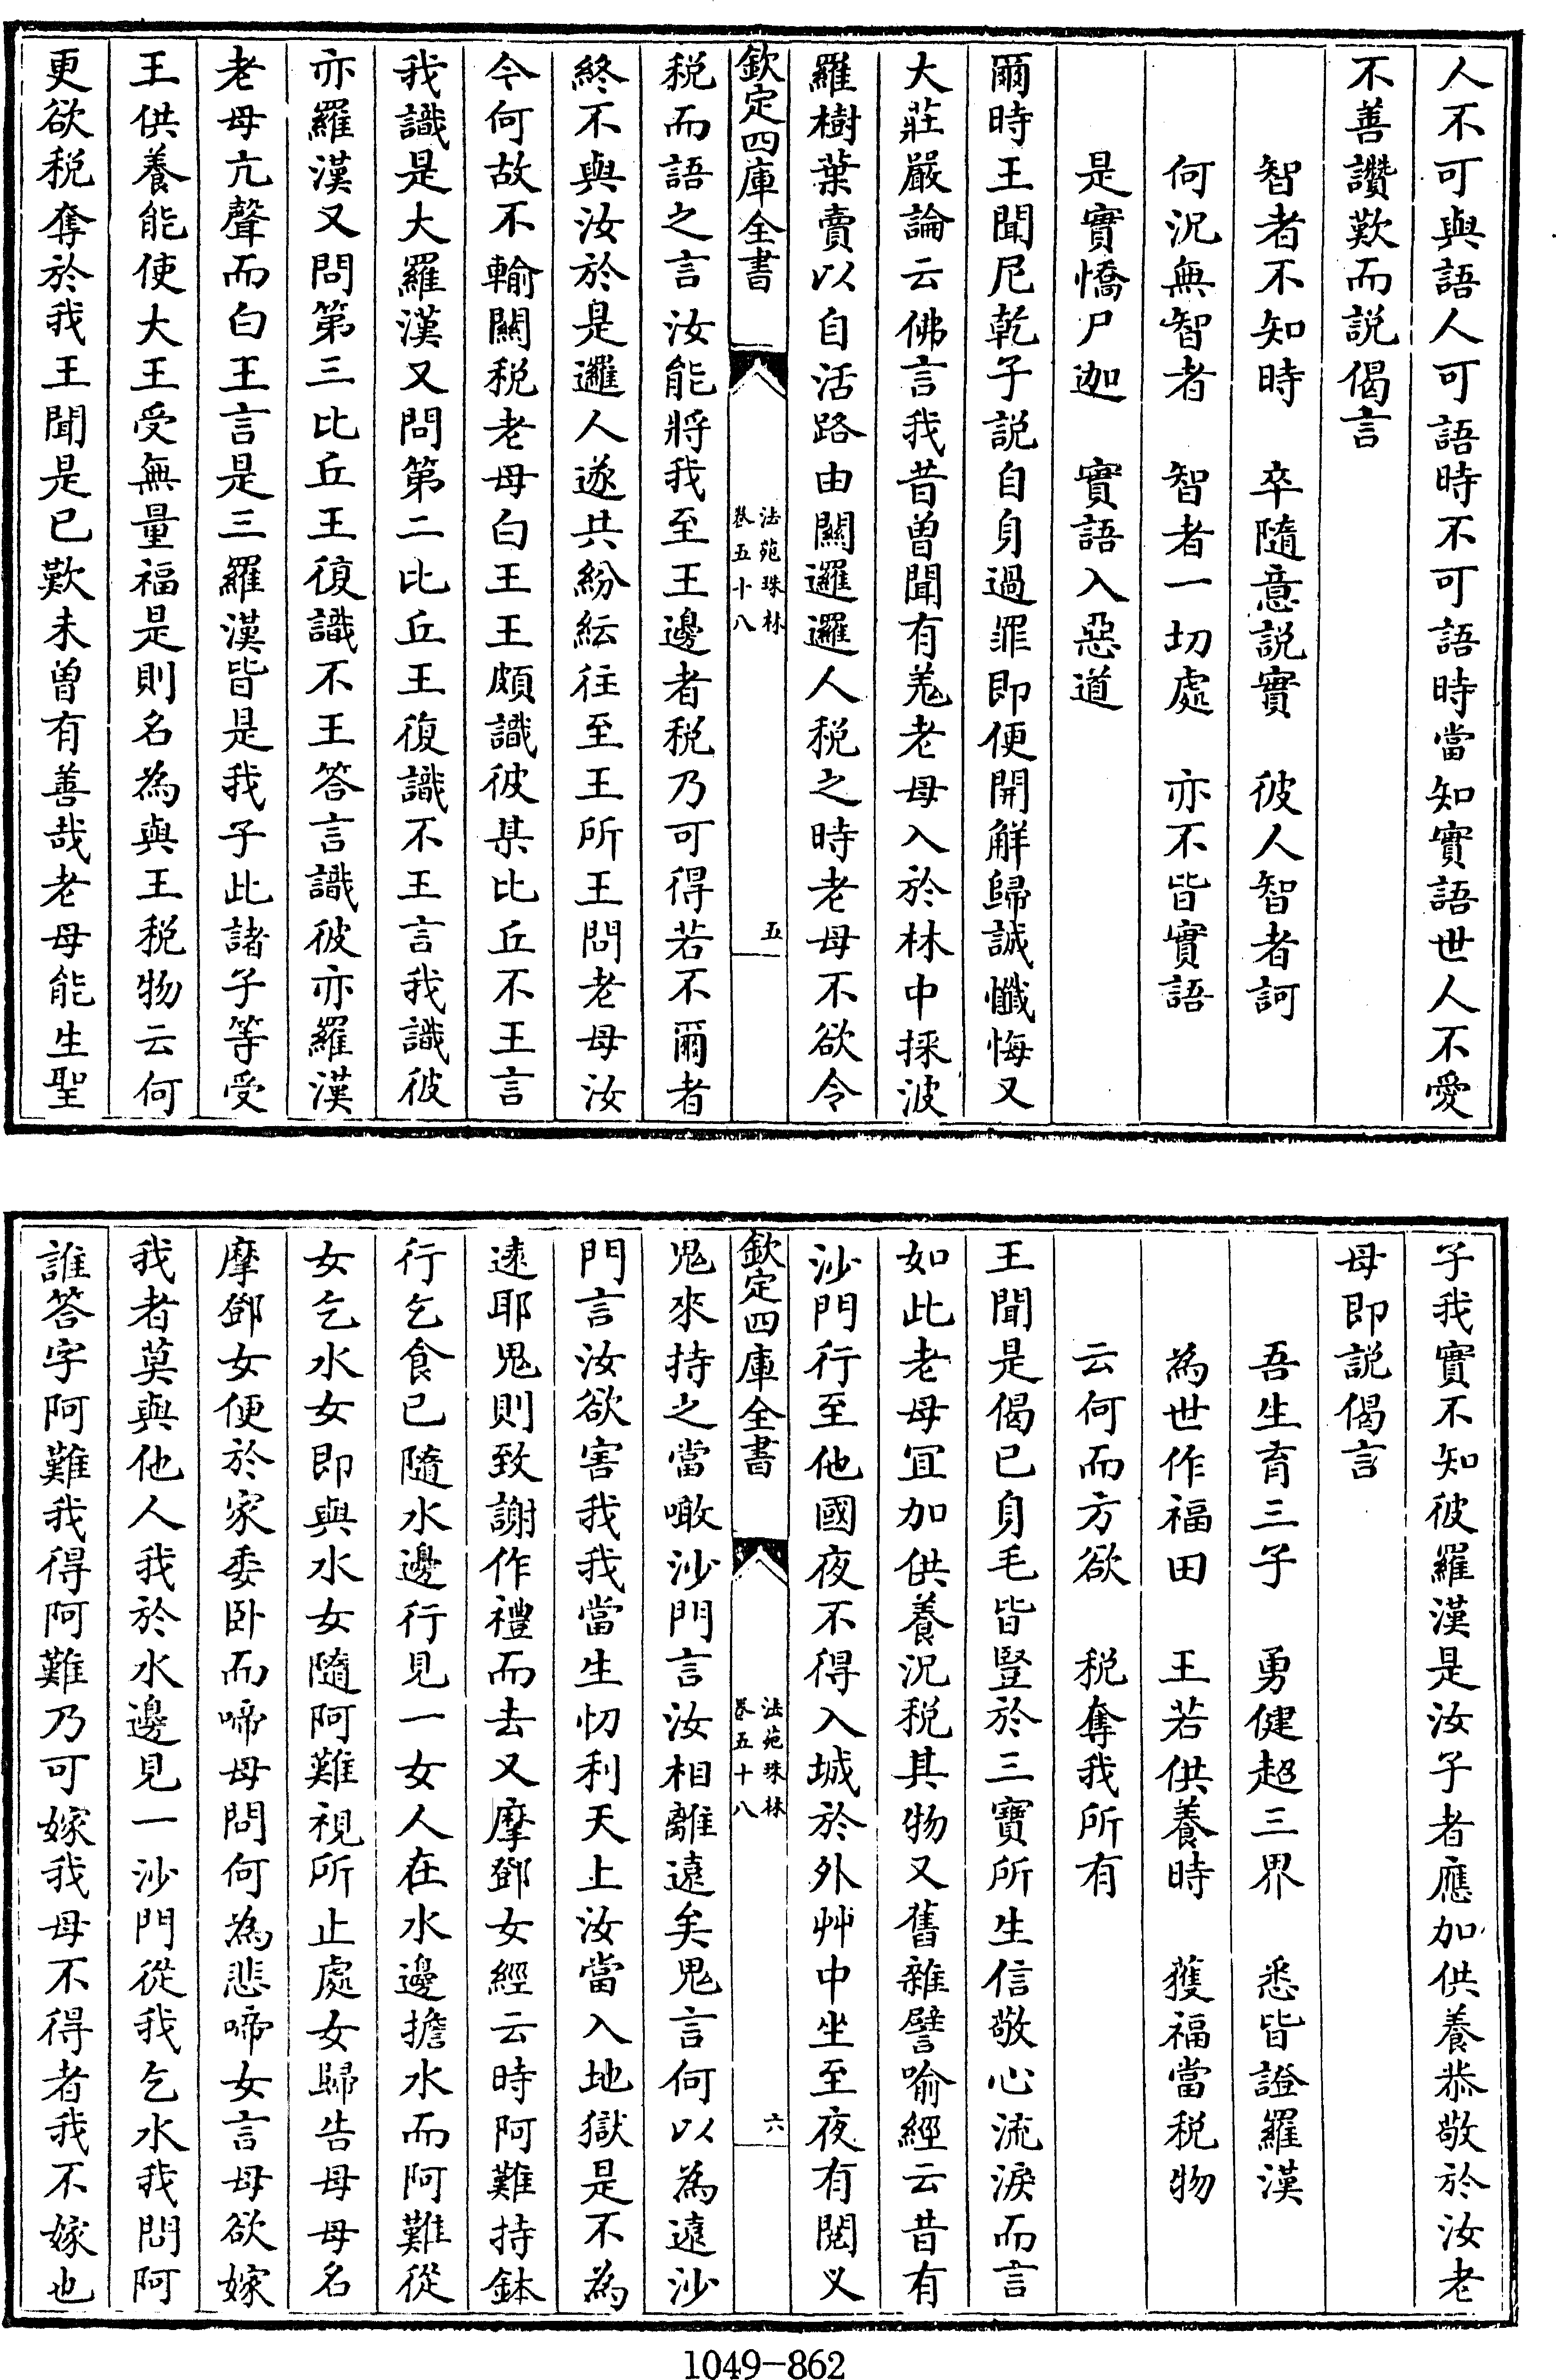 人不可與語人可語時不可語時當知實語世人不愛
不善讚歎而説偈言
智者不知時　卒隨意説實　彼人智者訶
何況無智者　智者一切處　亦不皆實語
是實憍尸迦　實語入惡道
爾時王聞尼乾子説自身過罪即便開解歸誠懺悔又
大莊嚴論云佛言我昔曽聞有羗老母入於林中採波
羅樹葉賣以自活路由關邏邏人税之時老母不欲令
欽定四庫全書
法苑珠林
卷五十八
五
税而語之言汝能將我至王邊者税乃可得若不爾者
終不與汝於是邏人遂共紛紜往至王所王問老母汝
今何故不輸關税老母白王王頗識彼某比丘不王言
我識是大羅漢又問第二比丘王復識不王言我識彼
亦羅漢又問第三比丘王復識不王答言識彼亦羅漢
老母亢聲而白王言是三羅漢皆是我子此諸子等受
王供養能使大王受無量福是則名為與王税物云何
更欲税奪於我王聞是已歎未曽有善哉老母能生聖
子我實不知彼羅漢是汝子者應加供養恭敬於汝老
母即説偈言
吾生育三子　勇健超三界　悉皆證羅漢
為世作福田　王若供養時　獲福當税物
云何而方欲　税奪我所有
王聞是偈已身毛皆豎於三寶所生信敬心流淚而言
如此老母宜加供養況税其物又舊雜譬喻經云昔有
沙門行至他國夜不得入城於外艸中坐至夜有閱叉
欽定四庫全書
法苑珠林
卷五十八
六
鬼來持之當噉沙門言汝相離遠矣鬼言何以為遠沙
門言汝欲害我我當生忉利天上汝當入地獄是不為
逺耶鬼則致謝作禮而去又摩鄧女經云時阿難持鉢
行乞食已隨水邊行見一女人在水邊擔水而阿難從
女乞水女即與水女隨阿難視所止處女歸告母母名
摩鄧女便於家委卧而啼母問何為悲啼女言母欲嫁
我者莫與他人我於水邊見一沙門從我乞水我問阿
誰答字阿難我得阿難乃可嫁我母不得者我不嫁也
1049-862